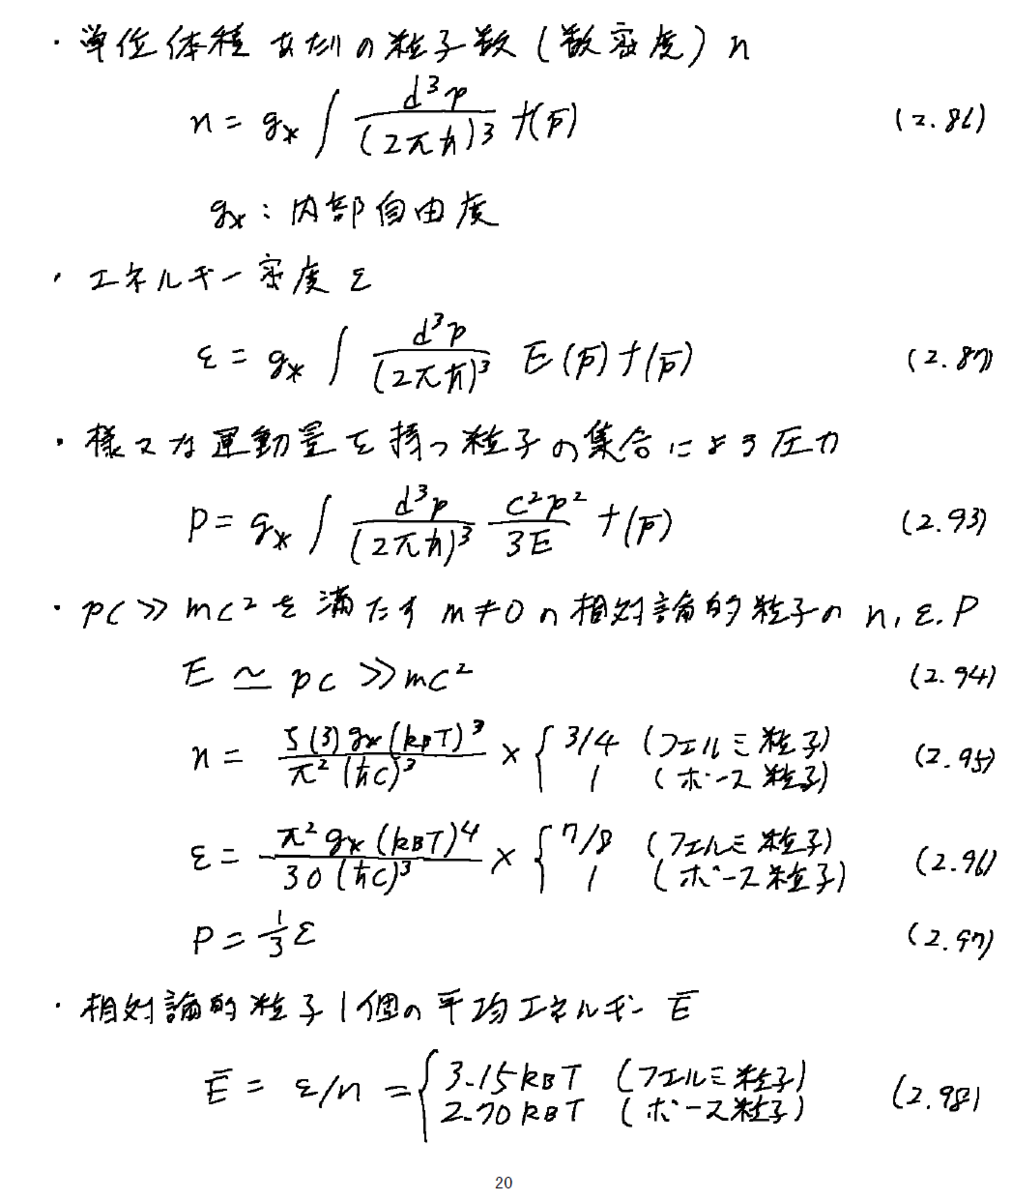 ・単位体積あたりの粒子数(数密度) n
n = g* ∫ d³p/(2πħ)³ f(p̄) (2.86)
g*: 内部自由度
・エネルギー密度 ε
ε = g* ∫ d³p/(2πħ)³ E(p̄) f(p̄) (2.87)
・様々な運動量を持つ粒子の集合による圧力
P = g* ∫ d³p/(2πħ)³ c²p²/3E f(p̄) (2.93)
・pc ≫ mc² を満たす m≠0 の相対論的粒子の n, ε, P
E ≃ pc ≫ mc² (2.94)
n = ζ(3) g* (kBT)³/π² (ħc)³ × { 3/4 (フェルミ粒子) 1 (ボース粒子) (2.95)
ε = π² g* (kBT)⁴/30 (ħc)³ × { 7/8 (フェルミ粒子) 1 (ボース粒子) (2.96)
P = 1/3 ε (2.97)
・相対論的粒子1個の平均エネルギー Ē
Ē = ε/n = { 3.15 kBT (フェルミ粒子) 2.70 kBT (ボース粒子) (2.98)
20